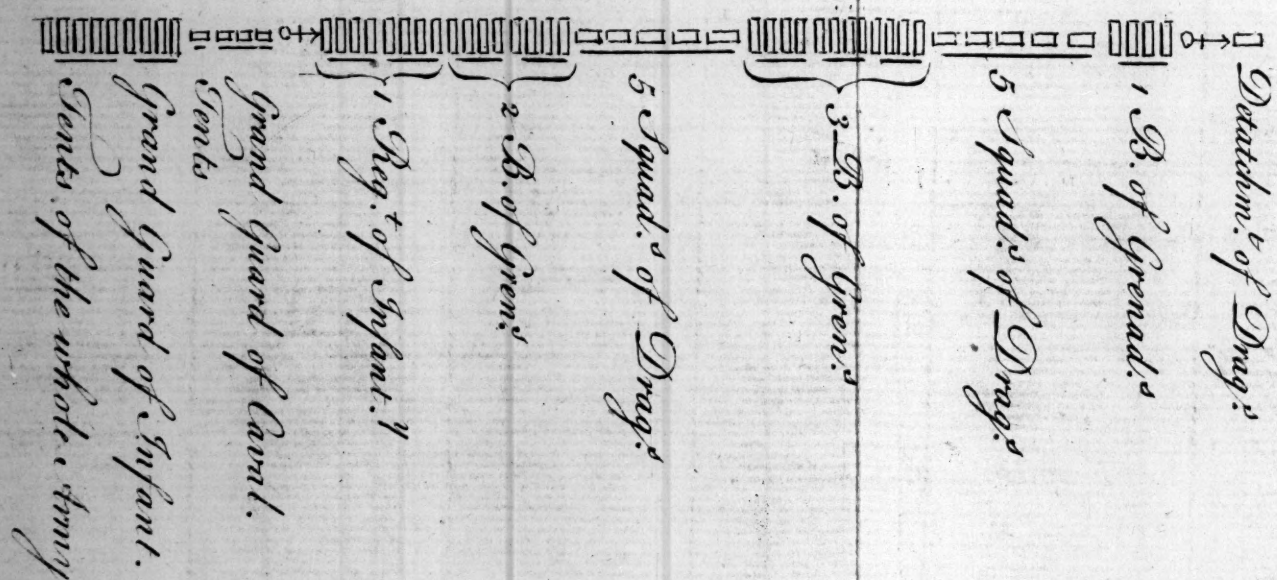 Detatchm.t of Drag.s
1 B. of Grenad.s
5 Squad.s of Drag.s
3 B. of Gren.s
5 Squad.s of Drag.s
2 B. of Gren.s
1 Reg.t of Infant.y
Grand Guard of Caval.
Tents
Grand Guard of Infant.
Tents of the whole Army